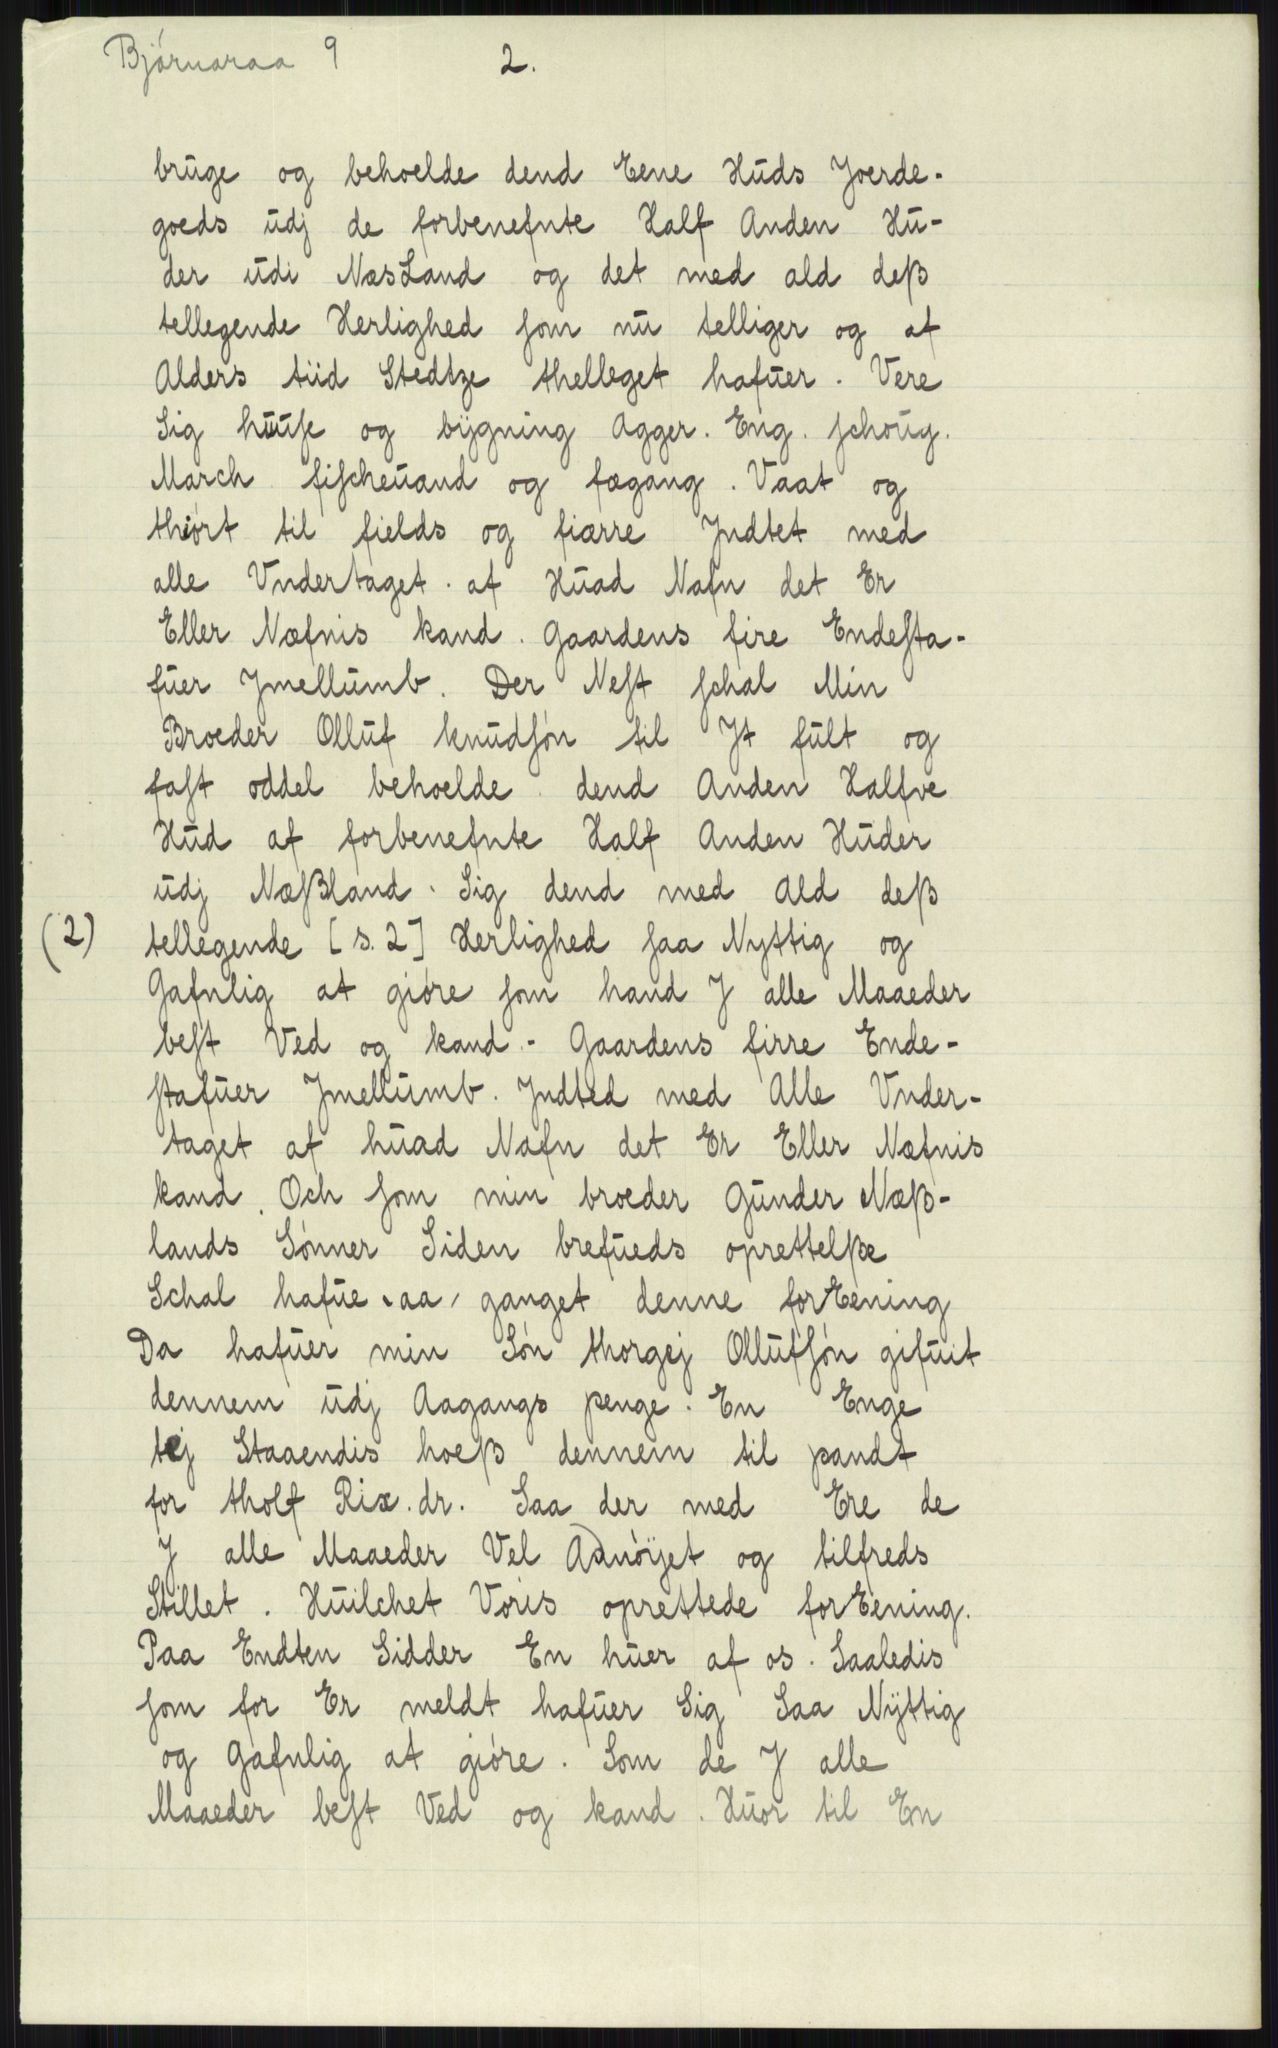 Bjórnaraa 9
2.
bruge og behoelde dend Eene Huds Joerde-
goeds udj de forbenefnte Half Anden Hu-
der udi NæsLand og det med ald deß
tellegende Herlighed som nu telliger og af
Alders tiid Stedtze thelleget hafuer. Vere
Sig huuse og bÿgning Agger. Eng. schoug.
March fischeuand og fægang. Vaat og
thiørt til fields og fiærre Jndtet med
alle Vndertaget. af Huad Nafn det Er
Eller Næfnis kand. Gaardens fire Endesta-
fuer Jmellumb. Der Nest schal Min
Broeder Olluf knudsón til Jt fult og
fast oddel behoelde dend Anden Halfve
Hud af forbenefnte Half Anden Huder
udj Næßland. Sig dend med Ald deß
(2) tellegende [s. 2] Herlighed saa Nyttig og
Gafnlig at gióre som hand J alle Maaeder
best Ved og kand.- Gaardens firre Ende-
stafuer Jmellumb. Jndted med Alle Vnder-
taget af huad Nafn det Er Eller Næfnis
kand. Och som min broeder Gunder Næß-
lands Sónner Siden brefueds oprettelße
Schal hafue aa ganget denne forEening
Da hafuer min Són thorgej Ollufsón gifuit
dennem udj Aagangs penge. En Enge
tej Staaendis hoeß dennem til pandt
for tholf Rix. dr. Saa der med Ere de
J alle Maaeder Vel Adnóÿet og tilfreds
Stillet. Huilchet Voris oprettede forEening.
Paa Endten Sidder En huer af os. Saaledis
som for Er meldt hafuer Sig Saa Nÿttig
og Gafnlig at gióre. Som de J alle
Maaeder best Ved og kand. Huor til En